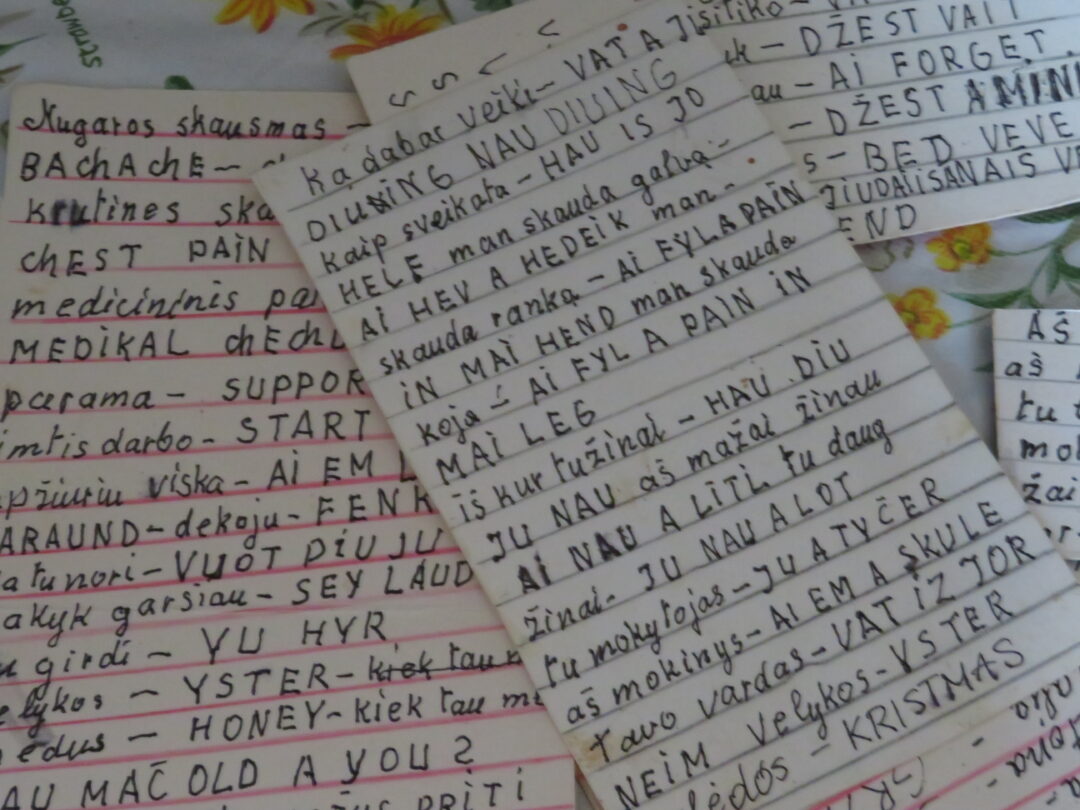 Nugaros skausmas –
BAChAChE –
krutines ska
ChEST PAIN
medicininis pa
MEDIKAL ChECh
parama – SUPPOR
imtis darbo – START
pžiuriu viska – AI EM L
ARAUND – dekoju – FENK
a tu nori – VUOT DIU JU
akyk garsiau – SEY LAUD
u girdi – YU HYR
elykos – YSTER – kiek tau
edus – HONEY – kiek tau me
AU MAČ OLD A YOU ?
PRITI
Ką dabar veiki – VAT A JU
DIUNING NAU DIUING
kaip sveikata – HAU IS JO
HELE man skauda galvą –
AI HEV A HEDEIK man –
skauda ranką – AI FYL A PAIN
IN MAI HEND man skauda
koja – AI FYL A PAIN IN
MAI LEG
iš kur tu žinai – HAU DIU
JU NAU aš mažai žinau
AI NAU A LITL tu daug
žinai – JU NAU A LOT
tu mokytojas – JU A TYČER
aš mokinys – AI EM A SKULE
tavo vardas – VAT IZ JOR
NEIM velykos – YSTER
lėdos – KRISTMAS
šitiko –
k – DŽEST VAIT
au – AI FORGET
– DŽEST AMINI
s – BED VEVE
JIUDAIISANAIS VE
END
AŠ
aš
tu
mo
žai
strawbe